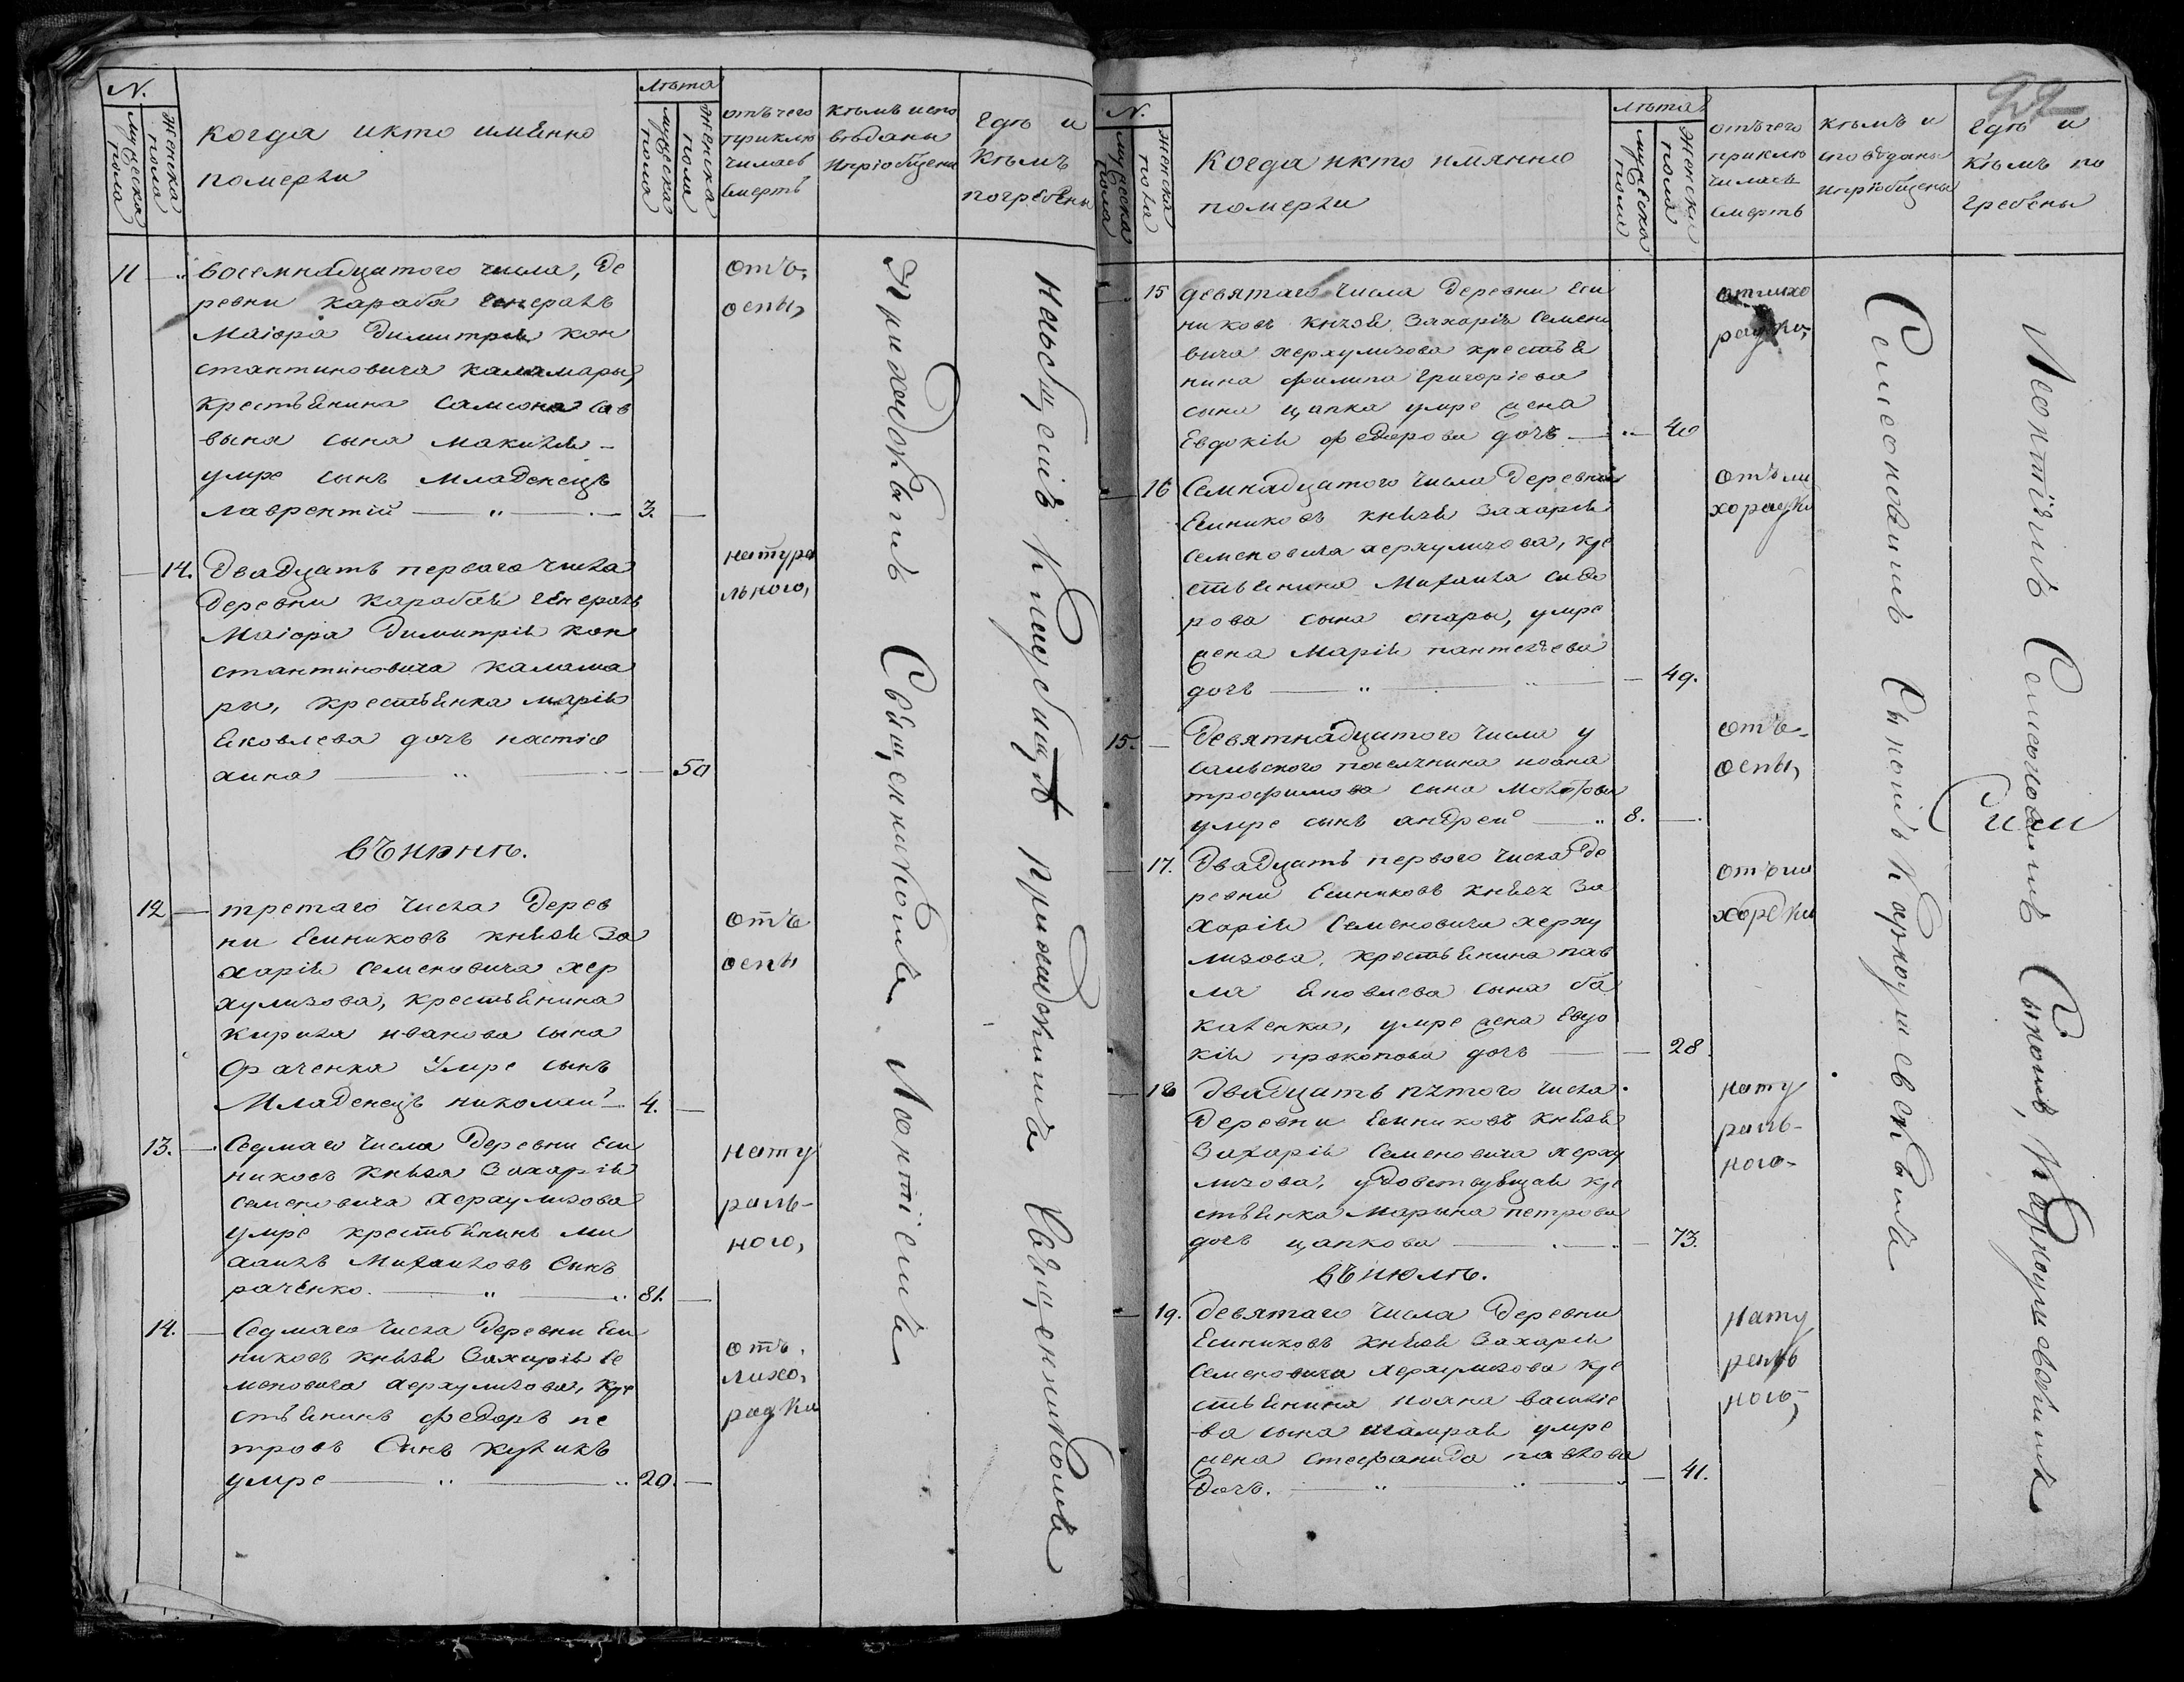 N.
мужеска пола
женска пола
когда икто имянно
померли
Лѣта
мужеска пола
женска пола
отъ чего
приклю
чилась
смерть
кѣмъ испо
вѣданы
ипріобщены
гдѣ и
кѣмъ
погребены
11
восемнадцатого числа, де
ревни караба генералъ
Маіора Димитрія кон
стантиновича каламары,
крестьянина Самсона Сав
вына сына
умре сынъ младенецъ
лаврентій
3.
отъ
оспы,
14.
двадцать первого числа
деревни карабая генералъ
Маіора Димитрія кон
стантиновича калама
ры, крестьянка марія
яковлева дочъ
50
натура
льного,
въ июнѣ.
12
третаго числа дерев
ни Есиниковъ князя За
харія Семеновича хер
хулизова, крестьянина
кирила иванова сына
умре сынъ
Младенецъ николай
4.
отъ
оспы
13.
Седмаго числа деревни Еси
никовъ князя Захарія
Семеновича херхулизова
умре крестьянинъ ми
хаилъ Михаиловъ Сынъ
раченко.
81.
нату
раль-
ного,
14.
Седмаго числа деревни Еси
никовъ князя Захарія Се
меновича херхулизова, кре
стьянинъ федоръ пе
тровъ Сынъ
умре
29.
отъ
лихо,
радки
приходскымъ Священникомъ Леонтіемъ
на общемъ кладбищѣ приходскимъ Священникомъ
N.
мужеска пола
женска пола
Когда икто имянно
померли
Лѣта
мужеска пола
женска пола
отъ чего
приклю
чилась
смерть
Кѣмъ и
споведаны
ипріобщены
гдѣ и
кѣмъ по
гребены
15
девятаго числа деревни Еси
никовъ князя Захарія Семено
вича херхулизова крестья
нина филипа григоріева
сына цапка умре жена
Евдокія федорова дочъ
40
отлихо
радки,
16
Семнадцатого числа деревни
Есиниковъ князя Захарія
Семеновича херхулизова, кре
стьянина Михаила сидо
рова сына спары, умре
жена Марія пантелѣева
дочъ
49.
отъ ли
хорадки
15.
Девятнадцатого числа у
Сальского поселянина иоана
трофимова сына
умре сынъ андрей
8.
отъ
оспы,
17.
Двадцать первого числа де
ревни Есиниковъ князя За
харія Семеновича херху
лизова, крестьянина пав
ла яковлева сына ба
каленка, умре жена Евдо
кія прокопова дочъ
28.
отъ ли
хоредки
18
двадцать пятого числа
Деревни Есиниковъ князя
Захарія Семеновича херху
лизова, вдовствующая кре
стьянка Марина петрова
дочъ цапкова
73.
нату
раль-
ного-
въ июлѣ.
19.
девятаго числа деревни
Есиниковъ князя Захарія
Семеновича херхулизова кре
стьянина иоана василіе
ва сына шамрая умре
жена стефанида павлова
Дочъ.
41.
нату
раль
ного,
Симеоновымъ Сыномъ
Леонтіемъ Симеоновымъ Сыномъ
Симъ